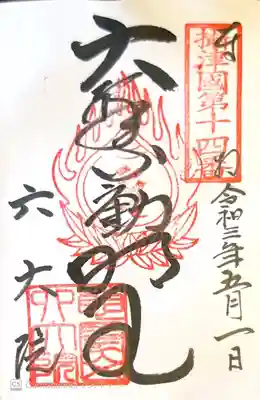 奉拝
摂津國第十四番
令和三年五月一日
大聖不動明王
六大院
CS